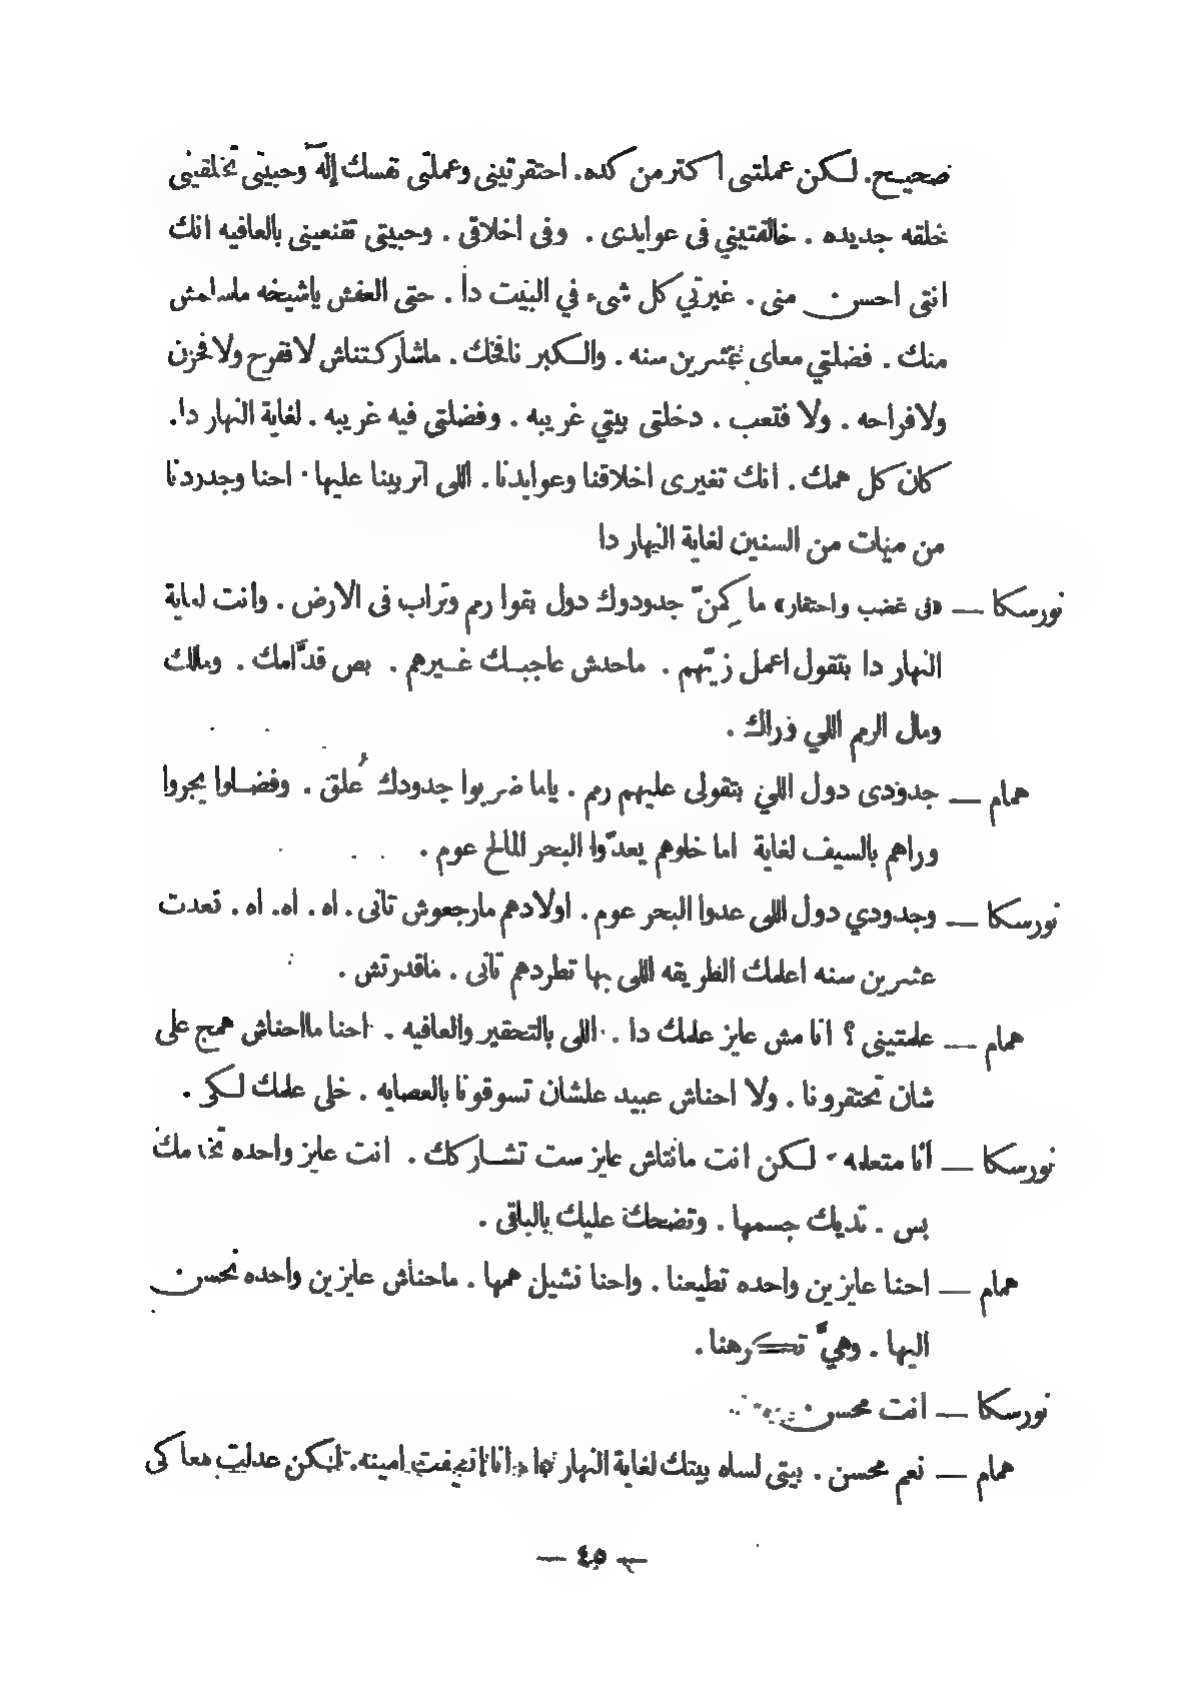 صحيح. لكن عملتى اكترمن كده. احتقرتينى وعملتى نفسك إلَه وحبيتى تخلقينى
خلقه جديده . خالفتيني فى عوايدى . وفى اخلاقى . وحبيتى تقنعينى بالعافيه انك
انتى احسن منى . غيرتي كل شىء في البيت دا . حتى العفش ياشيخه ماسلمش
منك . فضلتي معاى عشرين سنه . والكبر نافخك . ماشاركتناش لافقرح ولافحزن
ولافراحه . ولا فتعب . دخلتى بيتي غريبه . وفضلتي فيه غريبه . لغاية النهار دا.
كان كل همك . انك تغيرى اخلاقنا وعوايدنا . اللى اتربينا عليها . احنا وجدردنا
من ميات من السنين لغاية النهار دا
نورسكا — «فى غضب واحتقار» ما كِمنّ جدودوك دول بقوا رمم وتراب فى الارض . وانت لغاية
النهار دا بتقول اعمل زيّهم . ماحدش عاجبك غيرهم . بص قدّامك . ومالك
ومال الرمم اللي وراك .
همام — جدودى دول اللي بتقولى عليهم رمم . ياما ضربوا جدودك عُلق . وفضلوا يجروا
وراهم بالسيف لغاية اما خلوهم يعدّوا البحر المالح عوم .
نورسكا — وجدودي دول اللى عدوا البحر عوم . اولادهم مارجعوش تانى . اه . اه. اه . قعدت
عشرين سنه اعلمك الطريقه اللى بها تطردهم تانى . ماقدرتش .
همام — علمتينى ؟ انا مش عايز علمك دا . اللى بالتحقير والعافيه . احنا مااحناش همج على
شان تحتقرونا . ولا احناش عبيد علشان تسوقونا بالعصايه . خلى علمك لكى .
نورسكا — أنا متعلمه . لكن انت مانتاش عايز ست تشاركك . انت عايز واحده تخدمك
بس . تديك جسمها . وتضحك عليك بالباقى .
همام — احنا عايزين واحده تطيعنا . واحنا نشيل همها . ماحناش عايزين واحده نحسن
اليها . وهيّ تكرهنا .
نورسكا — انت محسن
همام — نعم محسن . بيتى لساه بيتك لغاية النهار دا . امينه. لكن عدلت معاكى
— ٤٥ —